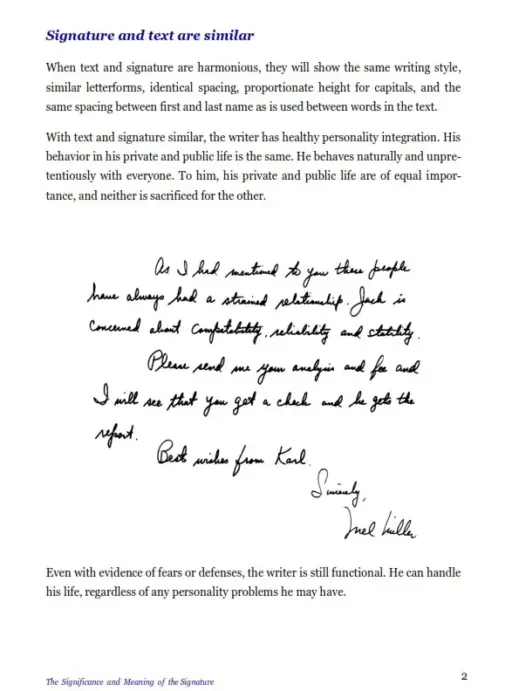 Signature and text are similar
When text and signature are harmonious, they will show the same writing style,
similar letterforms, identical spacing, proportionate height for capitals, and the
same spacing between first and last name as is used between words in the text.
With text and signature similar, the writer has healthy personality integration. His
behavior in his private and public life is the same. He behaves naturally and unpre-
tentiously with everyone. To him, his private and public life are of equal impor-
tance, and neither is sacrificed for the other.
As I had mentioned to you these people
have always had a strained relationship. Jack is
concerned about compatability, reliability and stability.
Please send me your analysis and fee and
I will see that you get a check and he gets the
report.
Best wishes from Karl.
Sincerely,
Even with evidence of fears or defenses, the writer is still functional. He can handle
his life, regardless of any personality problems he may have.
The Significance and Meaning of the Signature
2